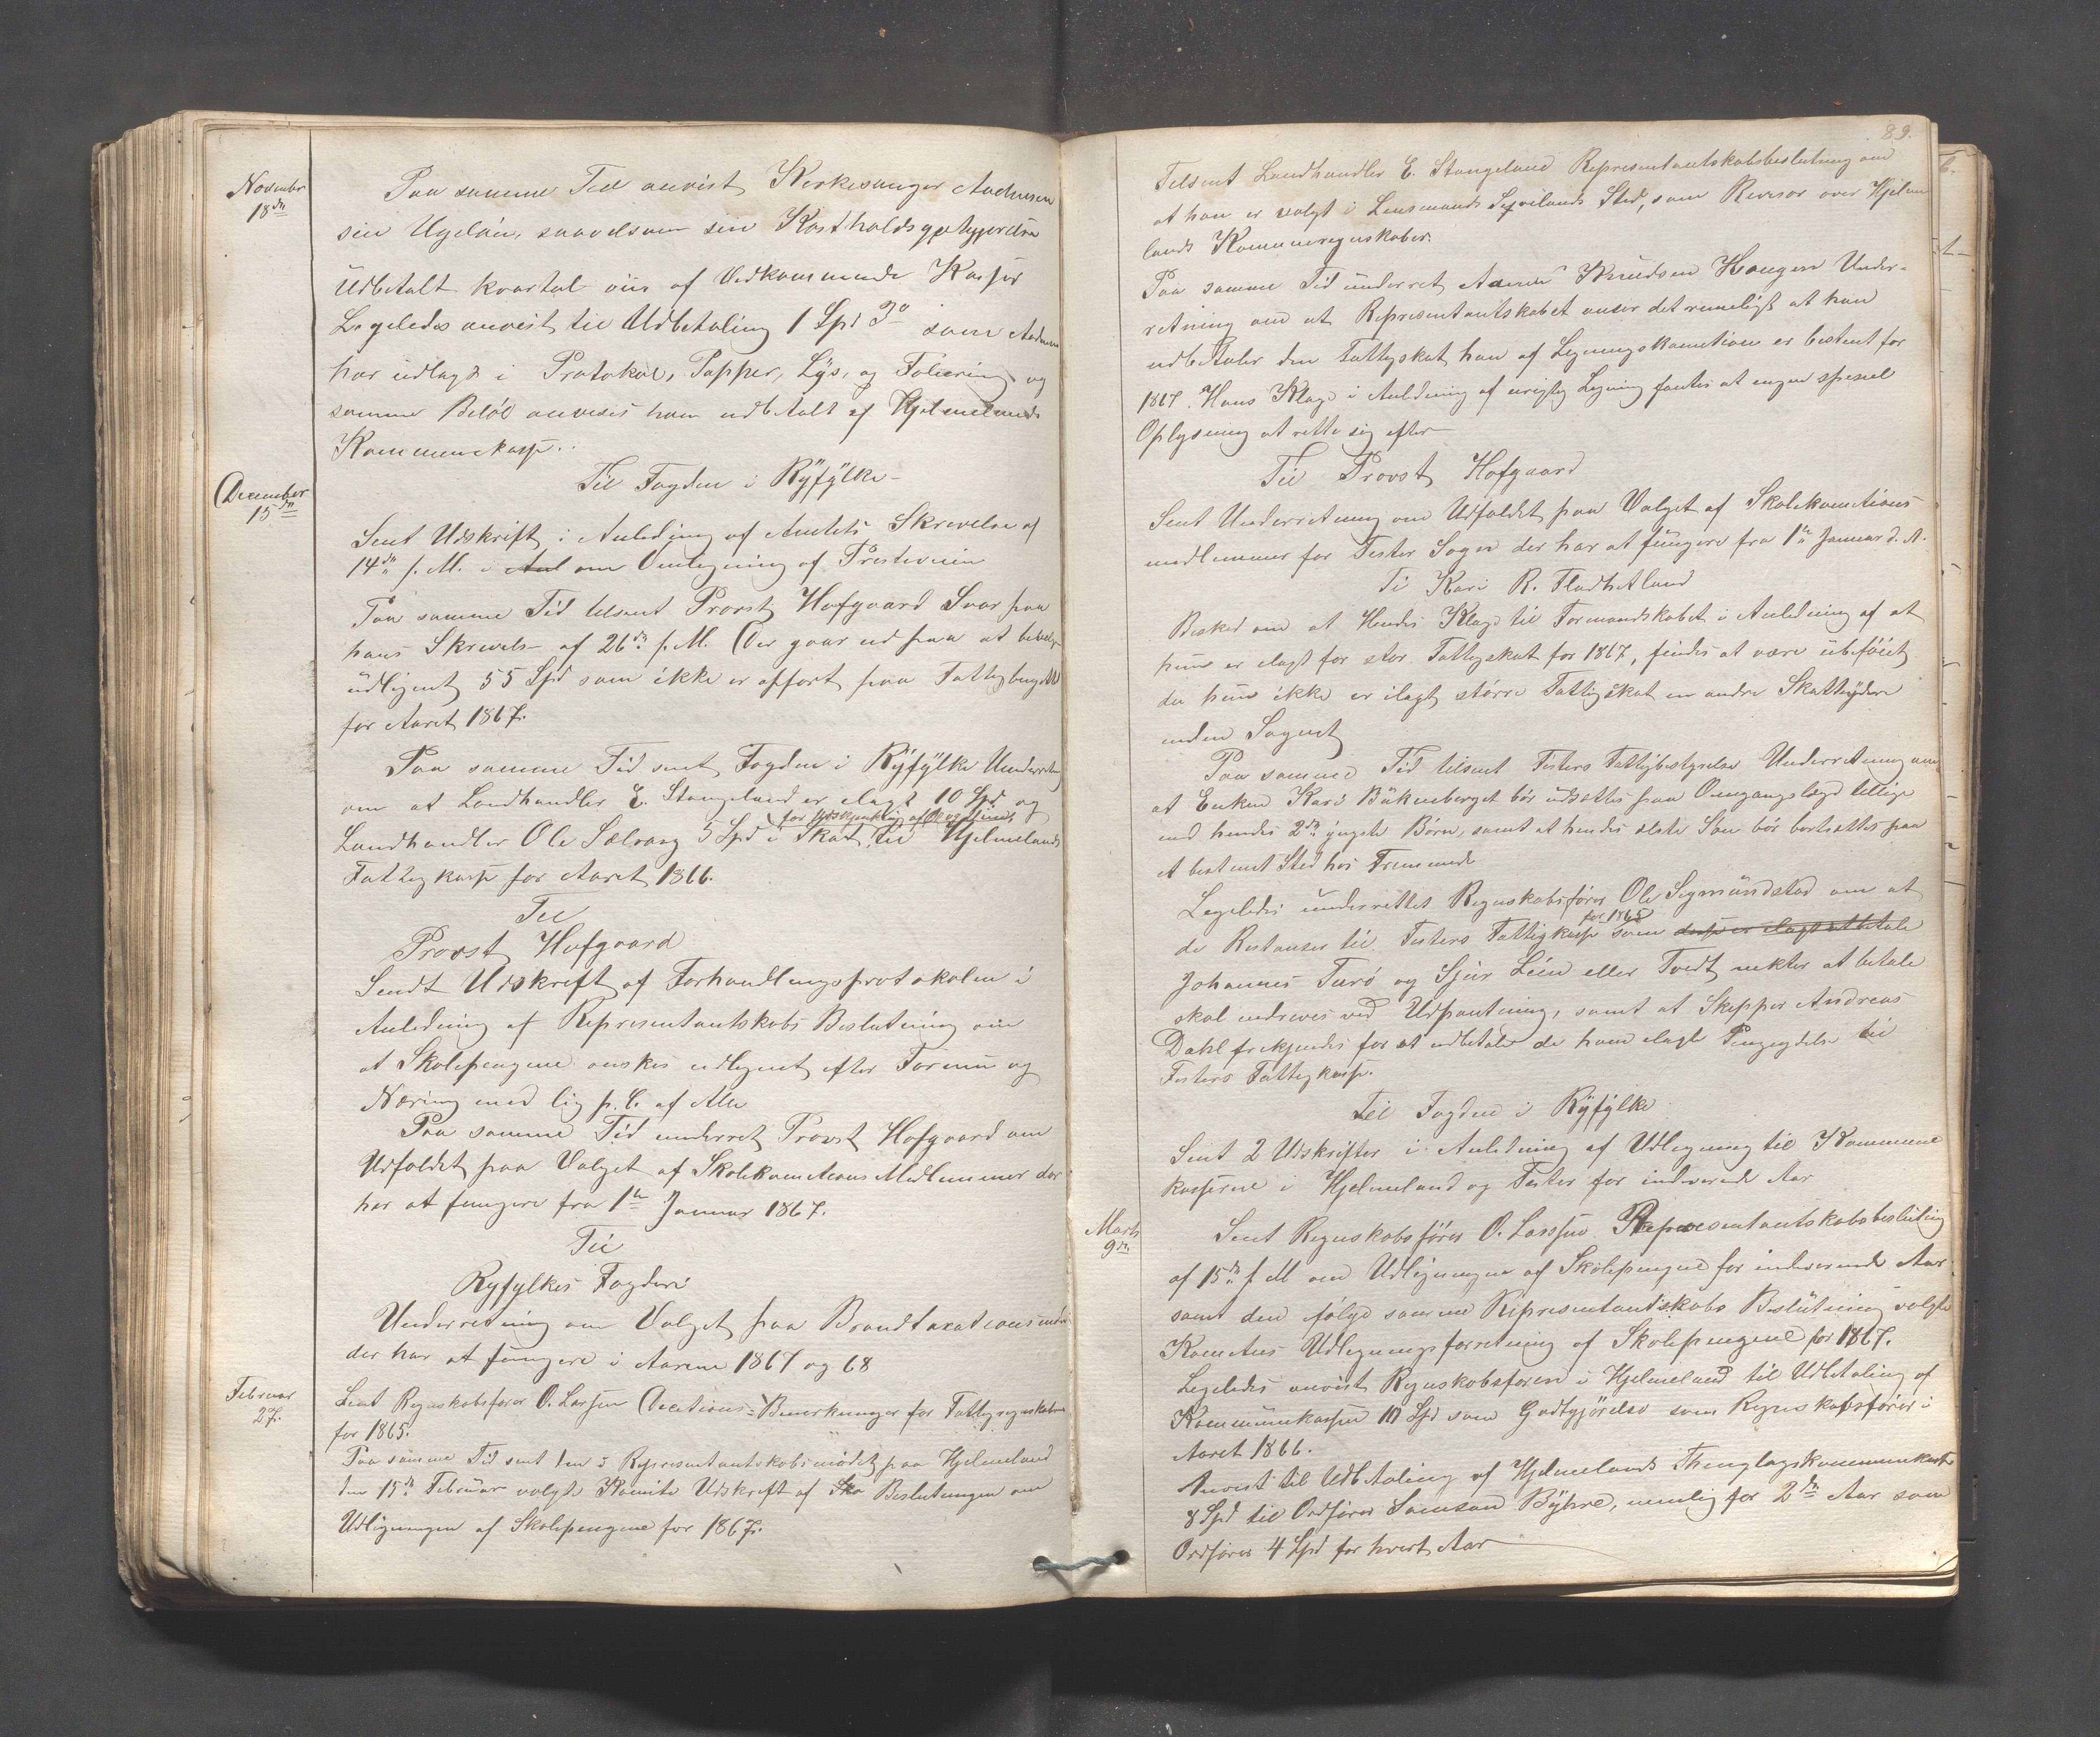 Novembr
18de
Paa samme Tid anvist Kirkesanger Andersen
sin Ugeløn, saavelsom sin Kostholdsgodtgjørelse
udbetalt kvartal viis af Vedkommende Kasser
Legeledes anvist til Udbetaling 1 Spd 3o som
har udlagt i Protokol, Papper, Lys, og Foliering og
samme Beløb anvises ham udbetalt af Hjelmelands
Kommunekasse.
December
15de
Til Fogden i Ryfylke
Sent Udskrift i Anledning af Amtets Skrivelse af
14de f. M. i Anl om Omligning af
Paa samme Tid tilsent Provst Hofgaard Svar paa
hans Skrivels af 26de f. M. Der gaar ud paa at
udlignet 55 Spd som ikke er opført paa
for Aaret 1867.
Paa samme Tid sent Fogden i Ryfylke Underretn
om at Landhandler E. Stangeland er ilagt 10 Spd og
for Udskjenkning af Øl og Viin,
Landhandler Ole Sælvaag 5 Spd i Skat til Hjelmelands
Fattigkasse for Aaret 1866.
Til
Provst Hofgaard
Sendt Udskrift af Forhandlingsprotokolen i
Anledning af Representantskabs Beslutning om
at Skolepengene ønskes udlignet efter Formue og
Næring med lig p. C. af Alle
Paa samme Tid underret Provst Hofgaard om
Udfaldet paa Valget af Skolekomitions Medlemmer der
har at fungere fra 1te Januar 1867.
Til
Ryfylkes Fogderi
Underretning om Valget paa Brandtaxations
der har at fungere i Aarene 1867 og 68
Februar
27.
Sent Regnskabsfører O. Larsen Decitions=Bemerkninger for Fattigregnskabene
for 1865.
Paa samme Tid sent den i Representantskabsmødet paa Hjelmeland
den 15de Februar valgte Komite Udskrift af Sko Beslutningen om
Udligningen af Skolepengene for 1867.
89.
Tilsent Landhandler E. Stangeland Representantskabsbeslutning om
at han er valgt i Lensmands Sted, som Revisor over Hjelme
lands Kommuneregnskaber.
Paa samme Tid underret Knudsen Haugen Under-
retning om at Representantskabet anser det rimeligt at han
udbetaler den Fattigskat han af Ligningskomitionen er bestemt for
1867. Hans Klage i Anledning af urigtig Ligning fantes at ingen speciel
Oplysning at rette sig efter
Til Provst Hofgaard
Sent Underretning om Udfaldet paa Valget af Skolekomitions
medlemmer for Fister Sogn der har at fungere fra 1te Januar d. A.
Ti Kari R. Fladhetland
Besked om at Hendes Klage til Formandskabet i Anledning af at
hun er ilagt for stor Fattigskat for 1867, findes at være ubeføiet
da hun ikke er ilagt større Fattigskat en andre Skatteydere
inden Sognet
Paa samme Tid tilsent Fisters Fattigbestyrelse Underretning om
at Enken Kari Bukneberget bør udsættes paa Omgangslægd tillige
med hendes 2de yngste Børn, samt at hendes elste Søn bør bortsættes paa
et bestemt Sted hos Fremmede
Legeledes underrettet Regnskabsfører Ole Segmundstad om at
for 1865
de Restanser til Fisters Fattigkasse som disse er ilagt at betale
Johannes Turø og Sjur Leien eller Tvedt nekter at betale
skal indrives ved Udpantning, samt at Skipper Andreas
Dahl frikjendes for at udbetale de ham ilagte Pengeydelse til
Fisters Fattigkasse.
Til Fogden i Ryfylke
Sent 2 Udskrifter i Anledning af Udligning til Kommune
kasserne i Hjelmeland og Fister for indeværende Aar
Marts
9de
Sent Regnskabsfører O. Larsen Representantskabsbeslutning
af 15de f. M om Udligningen af Skolepengene for indeværende Aar
samt den ifølge samme Representantskabs Beslutning valgte
Komites Udligningsforretning af Skolepengene for 1867.
Legeledes anvist Regnskabsføren i Hjelmeland til Udbetaling af
Kommunekassen 10 Spd som Godtgjørelse som Regnskabsfører i
Aaret 1866.
Anvist til Udbetaling af Hjelmelands Thinglagskommunekasse
8 Spd til Ordfører Samson Byhre, nemlig for 2de Aar som
Ordfører 4 Spd for hvert Aar